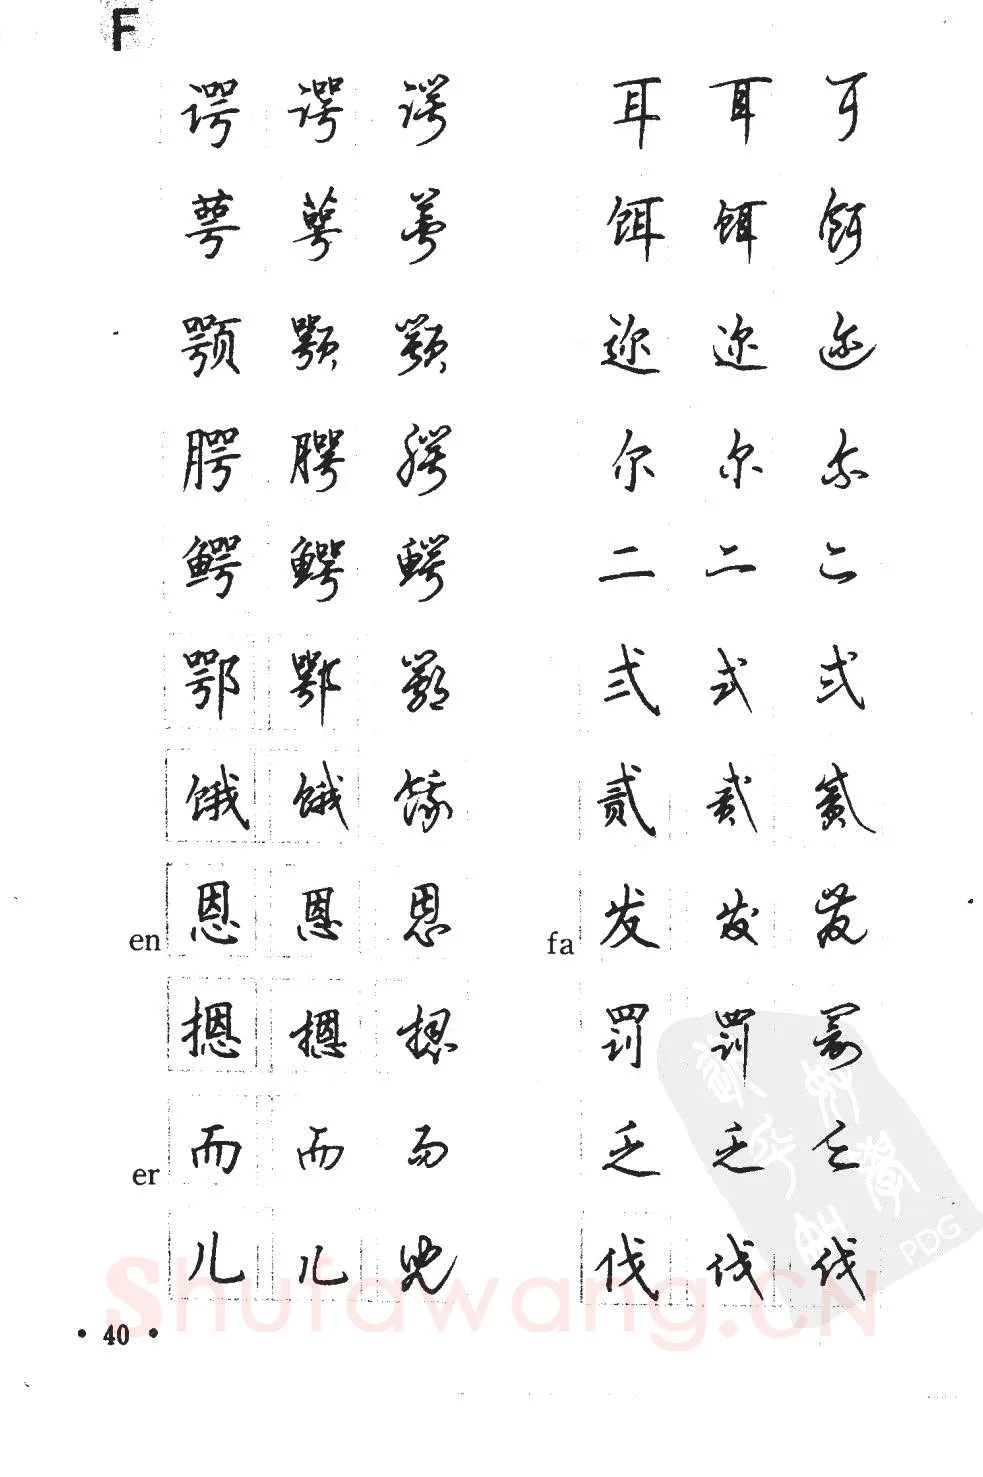 F
谔 谔 谔
萼 萼 萼
颚 颚 颚
腭 腭 腭
鳄 鳄 鳄
鄂 鄂 鄂
饿 饿 饿
en 恩 恩 恩
摁 摁 摁
er 而 而 而
儿 儿 兒
耳 耳 耳
饵 饵 饵
迩 迩 迩
尔 尔 尔
二 二 二
弍 弍 弍
贰 贰 贰
fa 发 发 发
罚 罚 罚
乏 乏 乏
伐 伐 伐
• 40 •
Shufawang.CN
PDG